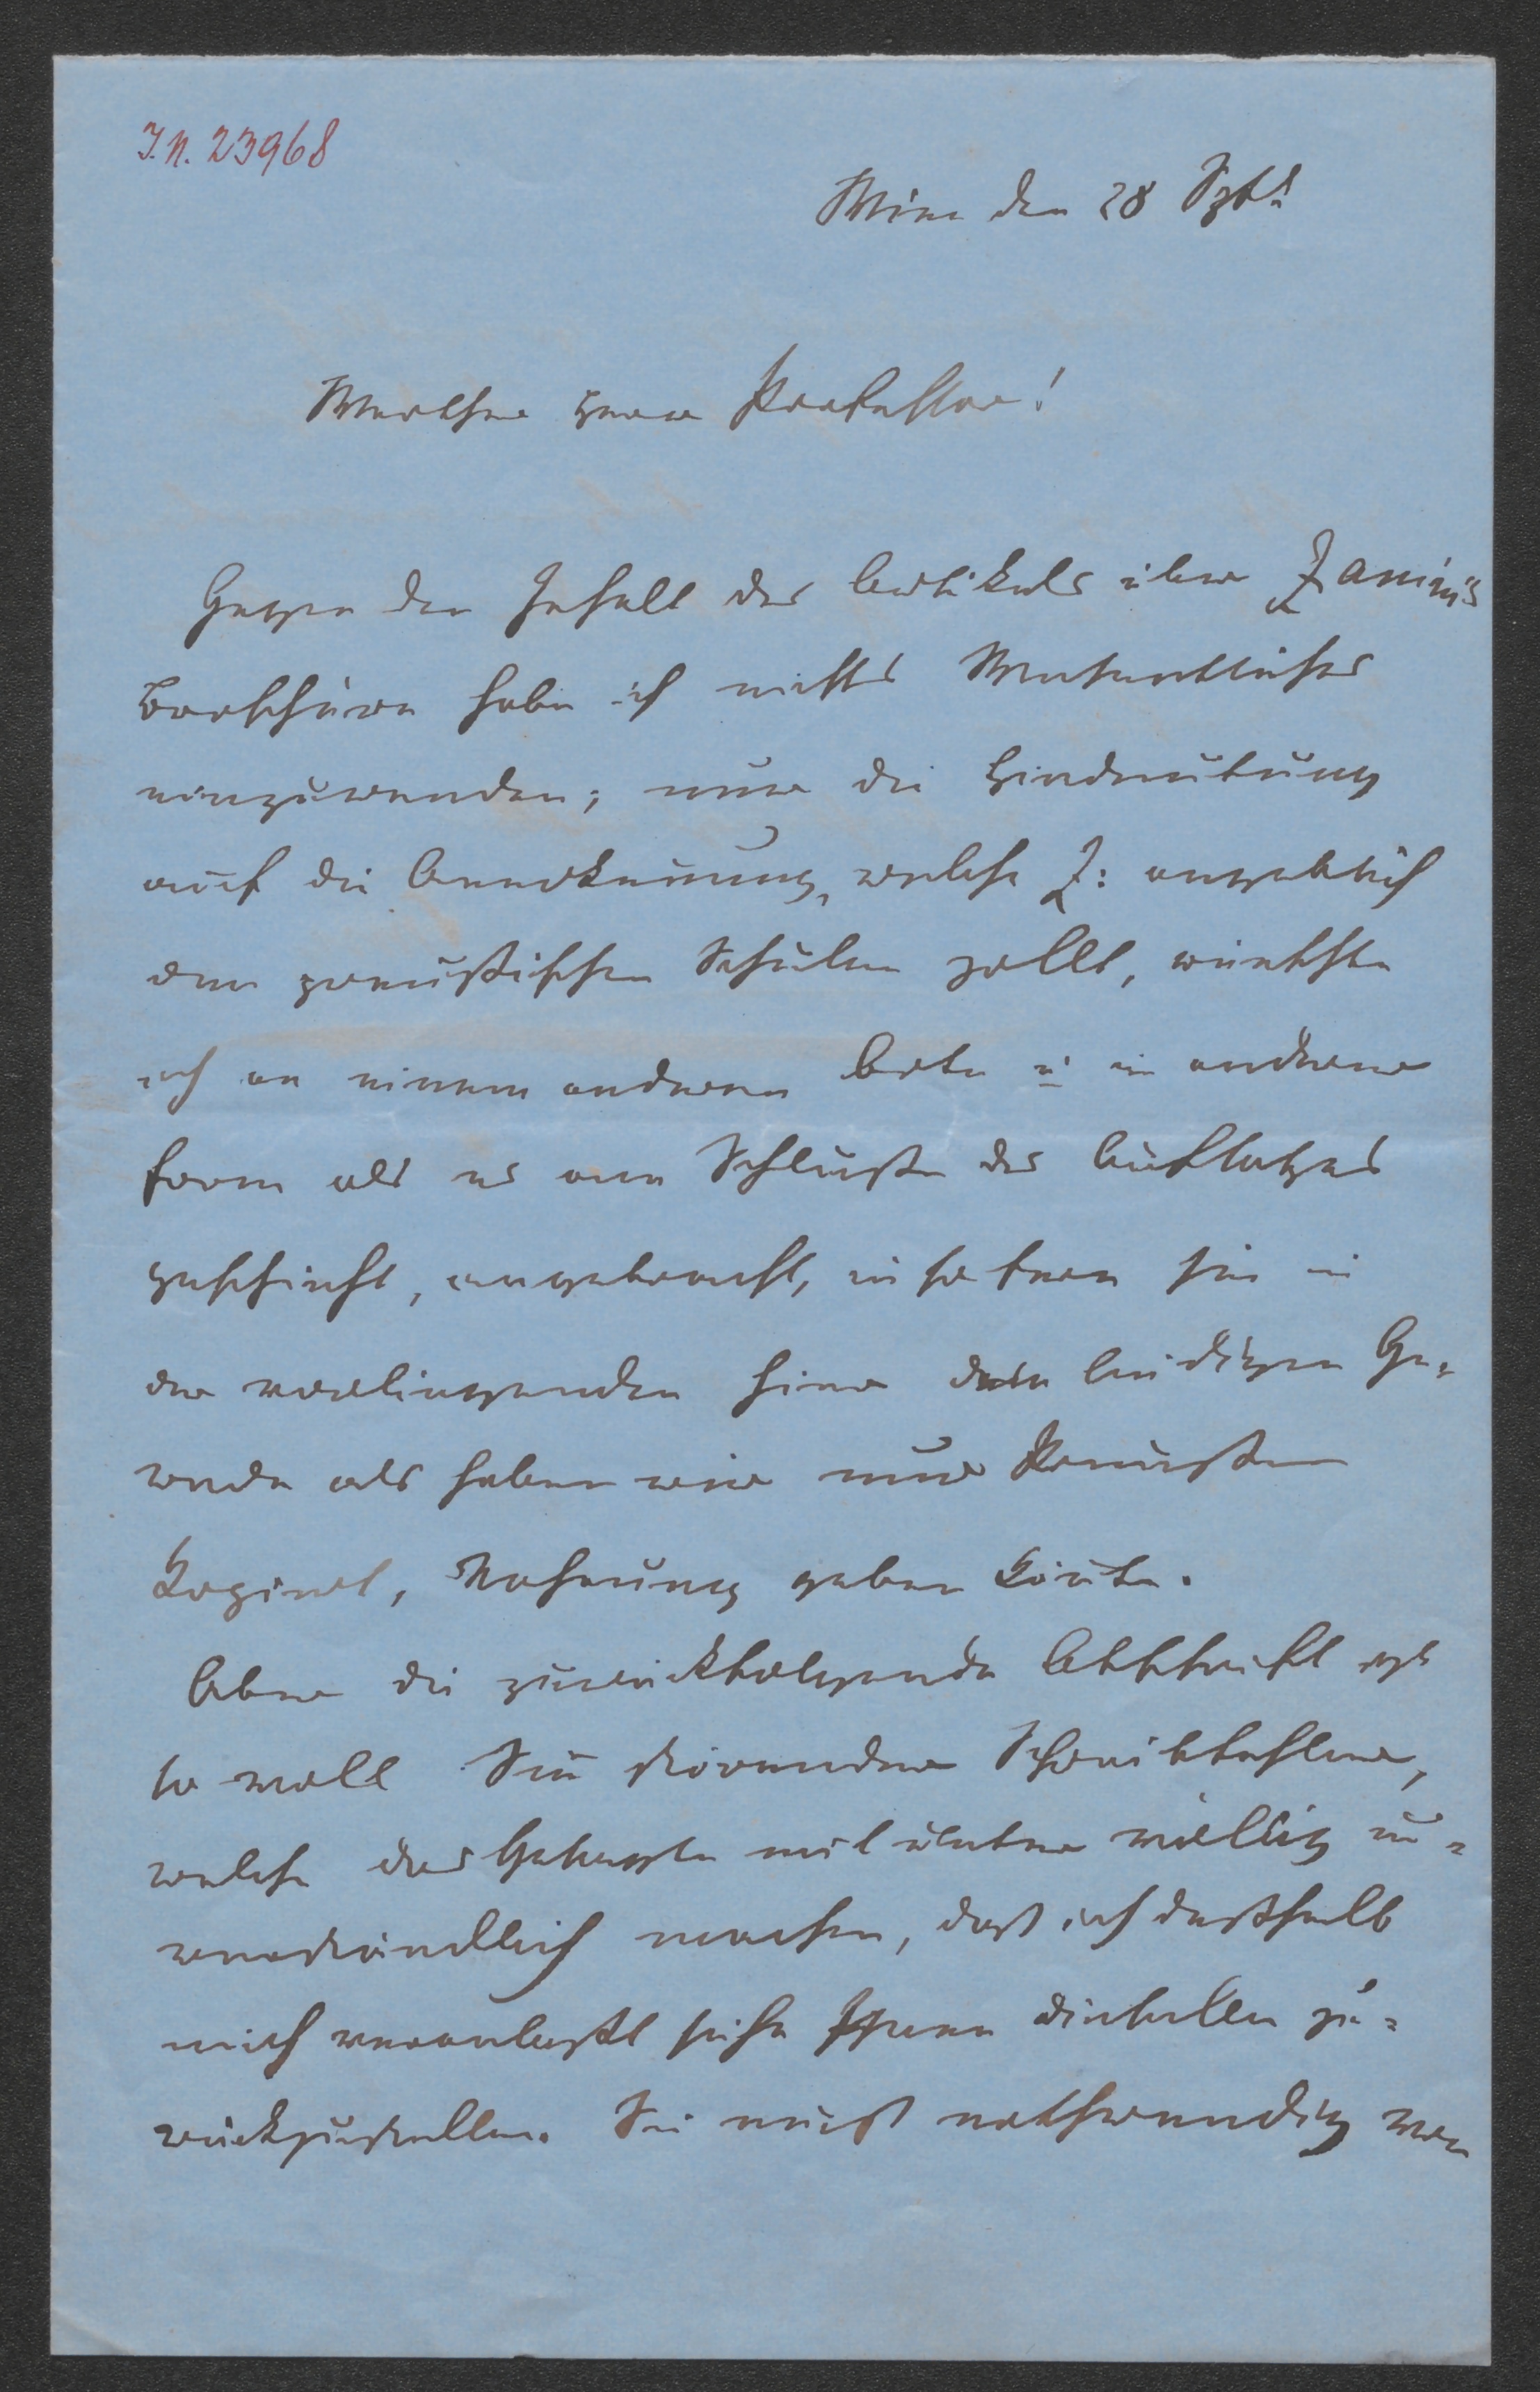 I.N. 23968
Wien den 28 Spt.
Werther Herr Professor!
Gegen den Inhalt des Artikels über Zamini's
Broschüre habe ich nichts Wesentliches
einzuwenden; nur die Hindeutung
auf die Anerkennung, welche Z: angeblich
den preußischen Schulen zollt, wünschte
ich an einem anderen Orte u in anderer
Form als es am Schluße des Aufsatzes
geschieht, angebracht, in so fern sie in
der vorliegenden hier dem leidigen Ge-
rede als haben wir nur Preußen
kopiert, Nahrung geben könte.
Aber die zurückfolgende Abschrift
so voll Sinn störender Schreibfehler,
welche das Gesagte mitunter völlig un-
verständlich machen, daß ich deßhalb
mich veranlaßt sehe Ihnen dieselbe zu-
rückzustellen. Sie muß nothwendig von